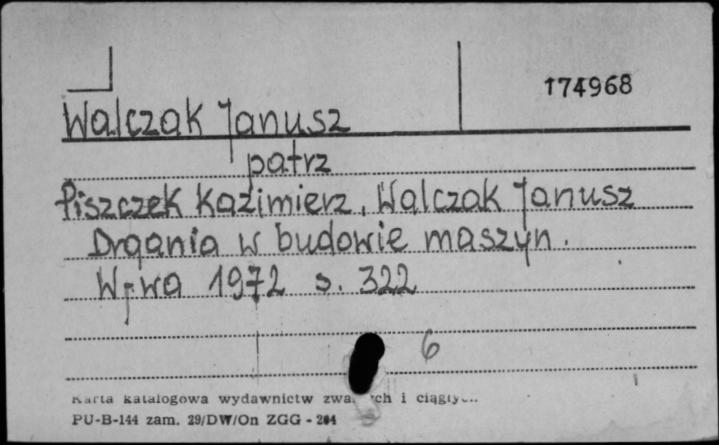 174968
Walczak Janusz
patrz
Piszczek Kazimierz, Walczak Janusz
Drgania w budowie maszyn.
W-wa 1972 s. 322
6
Karta katalogowa wydawnictw i
PU-B-144 zam. 29/DW/On ZGG - 264